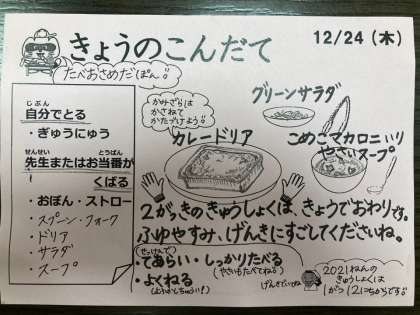 きょうのこんだて
12/24（木）
たべおさめだぽん！
じぶん
自分でとる
・ぎゅうにゅう
せんせい とうばん
先生またはお当番が
くばる
・おぼん・ストロー
・スプーン・フォーク
・ドリア
・サラダ
・スープ
かみざらは
かさねて
かたづけよう！
グリーンサラダ
カレードリア
こめこマカロニいり
やさいスープ
2がっきのきゅうしょくは、きょうでおわりです。
ふゆやすみ、げんきにすごしてくださいね。
せっけんで
・てあらい・しっかりたべる
（やさいもたべてね！）
・よくねる
げんきでいてね
2021ねんの
きゅうしょくは
1がつ12にちからです！